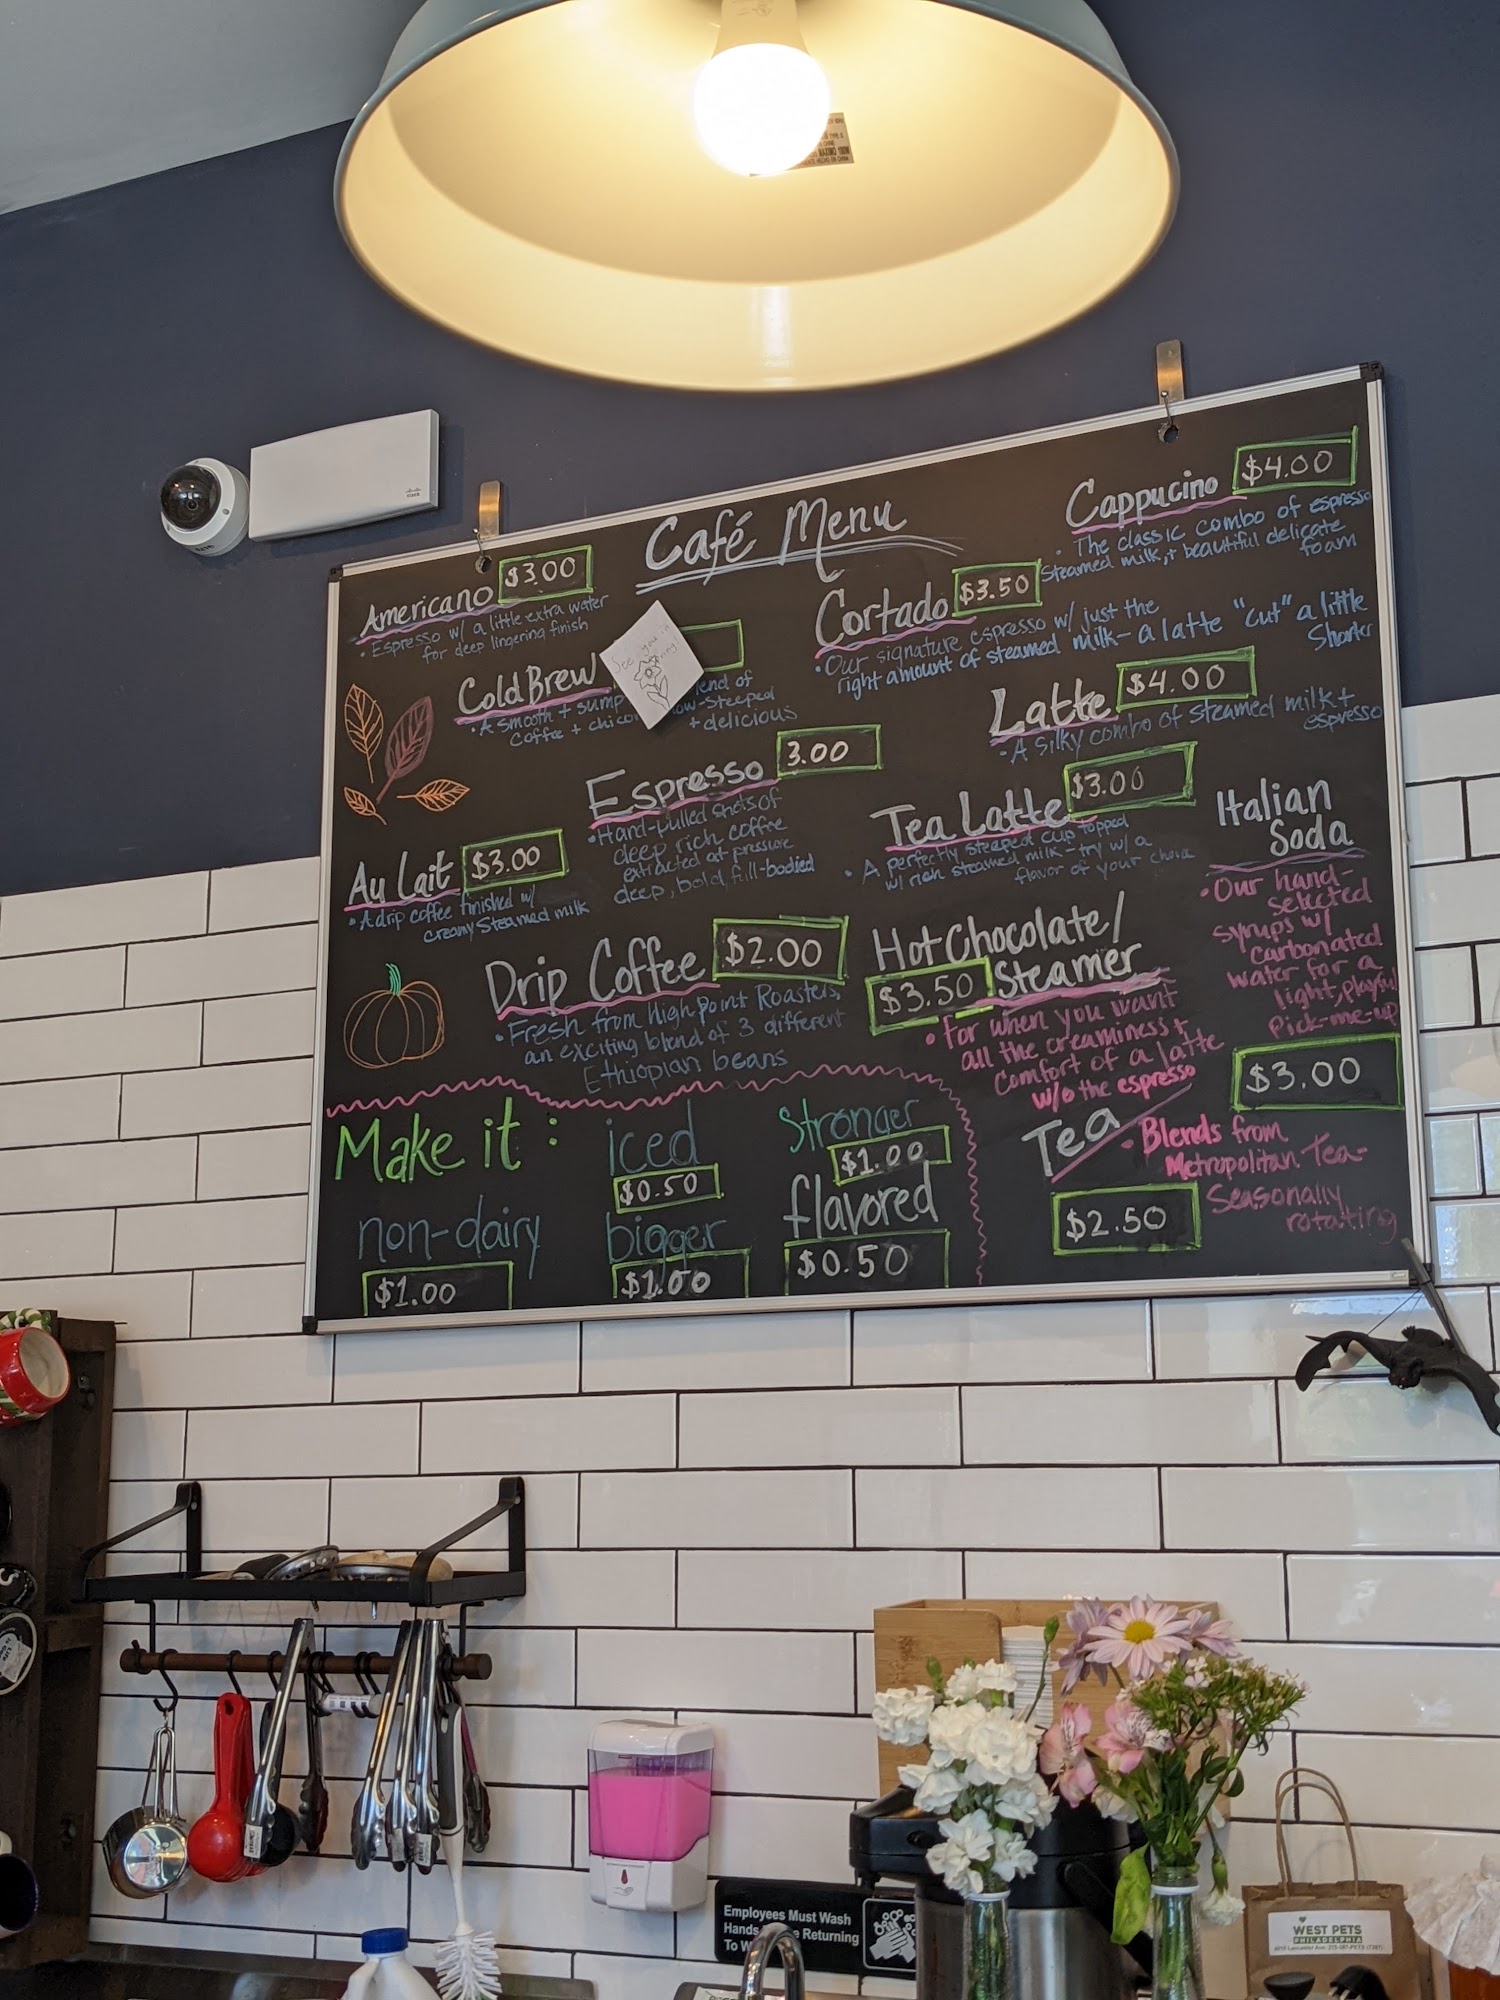 Café Menu
Americano $3.00
• Espresso w/ a little extra water
for deep lingering finish
See you in
Cold Brew
• A smooth +
coffee +
+ delicious
Espresso 3.00
• Hand-pulled shots of
deep rich coffee
extracted at pressure
deep, bold, full-bodied
Au Lait $3.00
• A drip coffee finished w/
creamy steamed milk
Drip Coffee $2.00
• Fresh from High Point Roasters,
an exciting blend of 3 different
Ethiopian beans
Cappucino $4.00
• The classic combo of espresso
steamed milk, + beautiful delicate
foam
Cortado $3.50
• Our signature espresso w/ just the
right amount of steamed milk - a latte "cut" a little
shorter
Latte $4.00
• A silky combo of steamed milk +
espresso
Tea Latte $3.00
• A perfectly steeped cup topped
w/ rich steamed milk - try w/ a
flavor of your choice
Hot Chocolate/
Steamer
$3.50
• For when you want
all the creaminess +
comfort of a latte
w/o the espresso
Italian
Soda
• Our hand-
selected
syrups w/
carbonated
water for a
light, playful
pick-me-up
$3.00
Tea
• Blends from
Metropolitan Tea-
Seasonally
rotating
$2.50
Make it:
iced
$0.50
stronger
$1.00
non-dairy
$1.00
bigger
$1.00
flavored
$0.50
Employees Must Wash
Hands Returning
To
WEST PETS
PHILADELPHIA